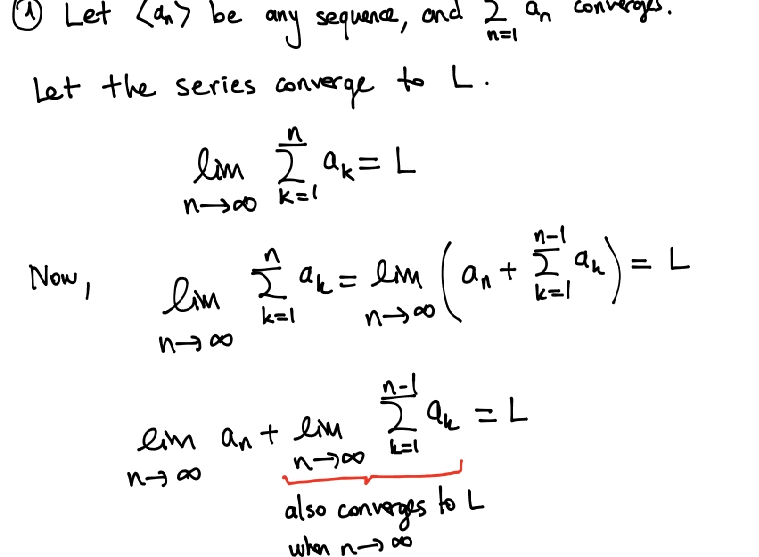 ① Let <aₙ> be any sequence, and ∑_{n=1} aₙ converges.
Let the series converge to L.
lim_{n→∞} ∑_{k=1}^{n} aₖ = L
Now, lim_{n→∞} ∑_{k=1}^{n} aₖ = lim_{n→∞} (aₙ + ∑_{k=1}^{n-1} aₖ) = L
lim_{n→∞} aₙ + lim_{n→∞} ∑_{k=1}^{n-1} aₖ = L
also converges to L
when n→∞